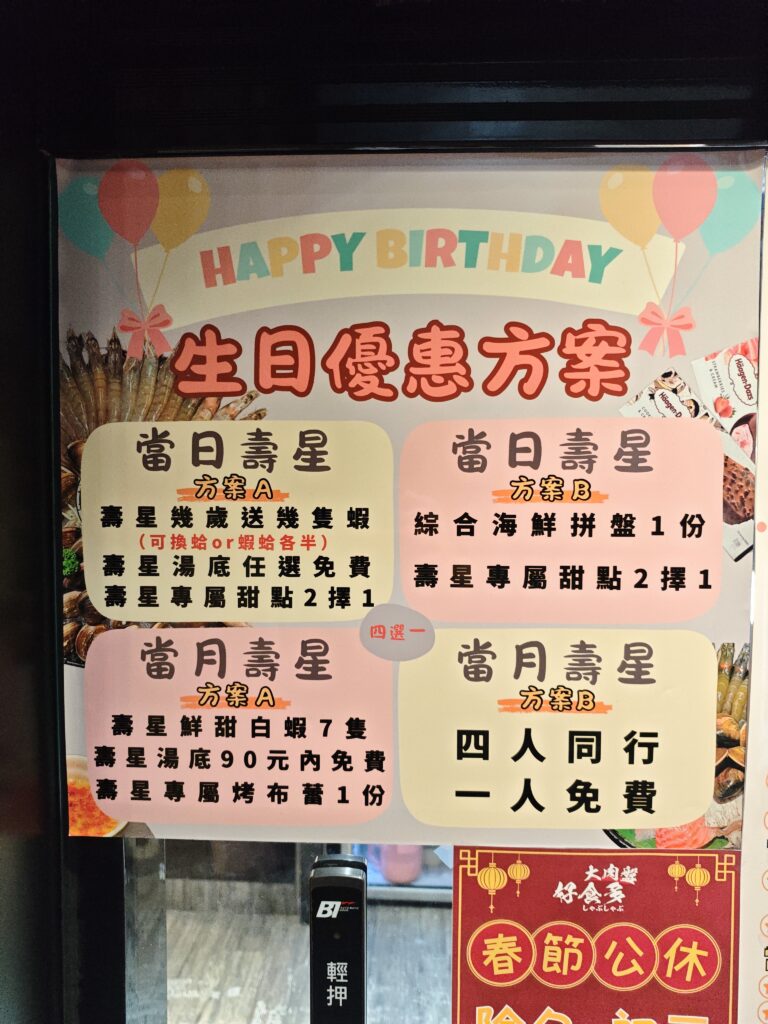 HAPPY BIRTHDAY
生日優惠方案
Häagen-Dazs
Häagen-Dazs
當日壽星
方案A
壽星幾歲送幾隻蝦
(可換蛤or蝦蛤各半)
壽星湯底任選免費
壽星專屬甜點2擇1
當日壽星
方案B
綜合海鮮拼盤1份
壽星專屬甜點2擇1
四選一
當月壽星
方案A
壽星鮮甜白蝦7隻
壽星湯底90元內免費
壽星專屬烤布蕾1份
當月壽星
方案B
四人同行
一人免費
BI
輕押
大肉盤
好食多
しゃぶしゃぶ
春節公休